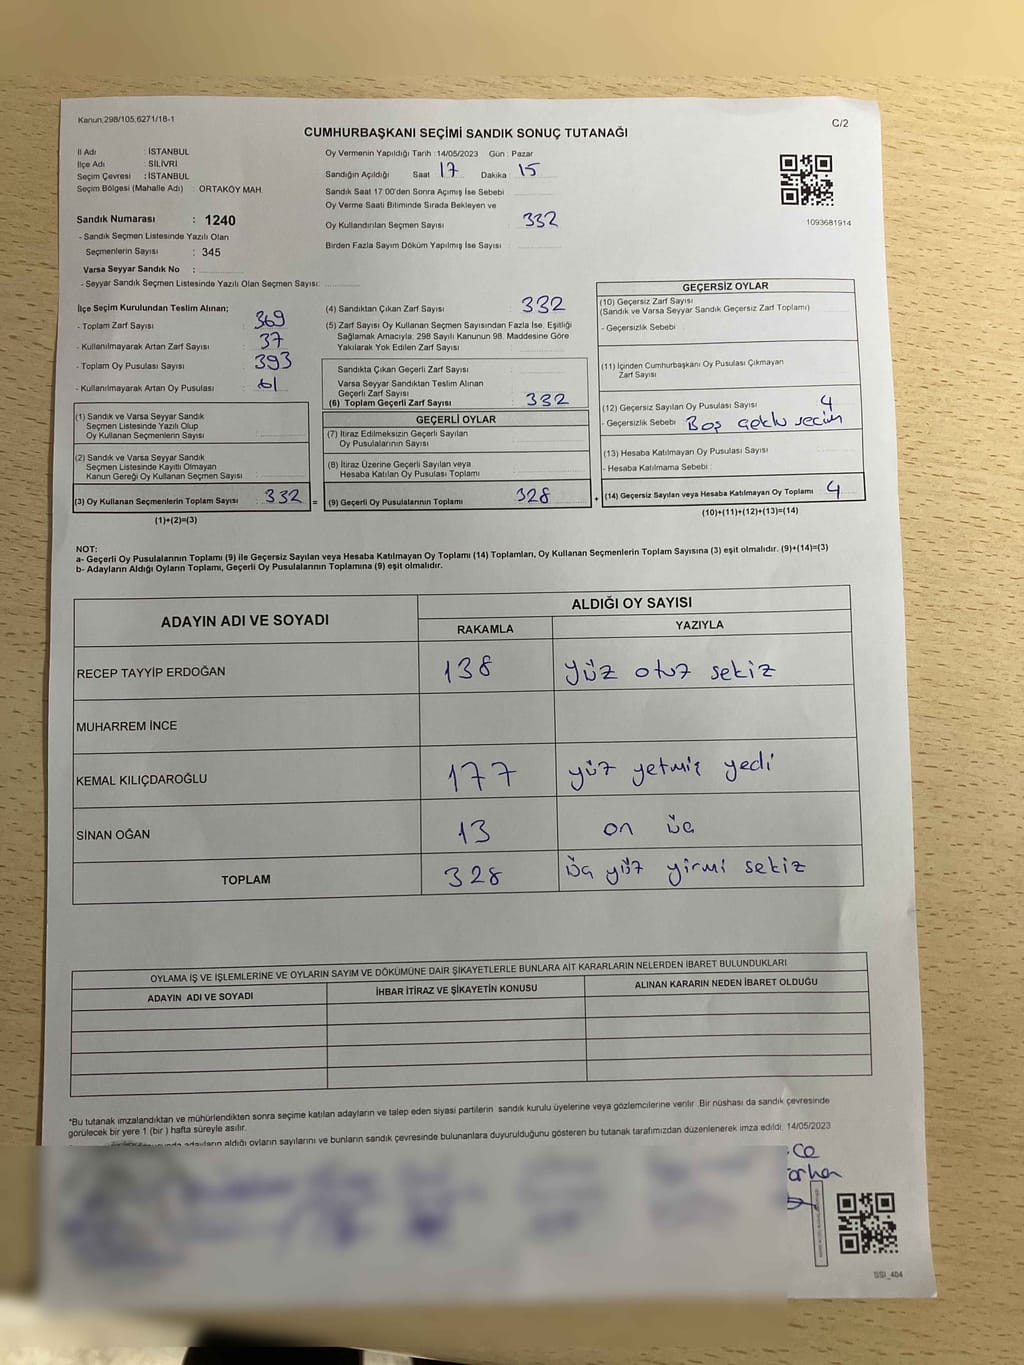 Kanun,298/105,6271/18-1
C/2
CUMHURBAŞKANI SEÇİMİ SANDIK SONUÇ TUTANAĞI
İl Adı : İSTANBUL
İlçe Adı : SİLİVRİ
Seçim Çevresi : İSTANBUL
Seçim Bölgesi (Mahalle Adı) : ORTAKÖY MAH.
Sandık Numarası : 1240
- Sandık Seçmen Listesinde Yazılı Olan
Seçmenlerin Sayısı : 345
Varsa Seyyar Sandık No :
- Seyyar Sandık Seçmen Listesinde Yazılı Olan Seçmen Sayısı:
Oy Vermenin Yapıldığı Tarih :14/05/2023 Gün : Pazar
Sandığın Açıldığı Saat 17 Dakika 15
Sandık Saat 17:00'den Sonra Açımış İse Sebebi
Oy Verme Saati Bitiminde Sırada Bekleyen ve
Oy Kullandırılan Seçmen Sayısı : 332
Birden Fazla Sayım Döküm Yapılmış İse Sayısı :
1093681914
İlçe Seçim Kurulundan Teslim Alınan;
- Toplam Zarf Sayısı : 369
- Kullanılmayarak Artan Zarf Sayısı : 37
- Toplam Oy Pusulası Sayısı : 393
- Kullanılmayarak Artan Oy Pusulası : 61
(1) Sandık ve Varsa Seyyar Sandık
Seçmen Listesinde Yazılı Olup
Oy Kullanan Seçmenlerin Sayısı :
(2) Sandık ve Varsa Seyyar Sandık
Seçmen Listesinde Kayıtlı Olmayan
Kanun Gereği Oy Kullanan Seçmen Sayısı :
(3) Oy Kullanan Seçmenlerin Toplam Sayısı : 332 =
(1)+(2)=(3)
(4) Sandıktan Çıkan Zarf Sayısı : 332
(5) Zarf Sayısı Oy Kullanan Seçmen Sayısından Fazla İse, Eşitliği
Sağlamak Amacıyla, 298 Sayılı Kanunun 98. Maddesine Göre
Yakılarak Yok Edilen Zarf Sayısı :
Sandıkta Çıkan Geçerli Zarf Sayısı :
Varsa Seyyar Sandıktan Teslim Alınan
Geçerli Zarf Sayısı :
(6) Toplam Geçerli Zarf Sayısı : 332
GEÇERLİ OYLAR
(7) İtiraz Edilmeksizin Geçerli Sayılan
Oy Pusulalarının Sayısı :
(8) İtiraz Üzerine Geçerli Sayılan veya
Hesaba Katılan Oy Pusulası Toplamı :
(9) Geçerli Oy Pusulalarının Toplamı : 328 +
GEÇERSİZ OYLAR
(10) Geçersiz Zarf Sayısı
(Sandık ve Varsa Seyyar Sandık Geçersiz Zarf Toplamı)
- Geçersizlik Sebebi :
(11) İçinden Cumhurbaşkanı Oy Pusulası Çıkmayan
Zarf Sayısı :
(12) Geçersiz Sayılan Oy Pusulası Sayısı : 4
- Geçersizlik Sebebi : Boş secim
(13) Hesaba Katılmayan Oy Pusulası Sayısı :
- Hesaba Katılmama Sebebi :
(14) Geçersiz Sayılan veya Hesaba Katılmayan Oy Toplamı 4
(10)+(11)+(12)+(13)=(14)
NOT:
a- Geçerli Oy Pusulalarının Toplamı (9) ile Geçersiz Sayılan veya Hesaba Katılmayan Oy Toplamı (14) Toplamları, Oy Kullanan Seçmenlerin Toplam Sayısına (3) eşit olmalıdır. (9)+(14)=(3)
b- Adayların Aldığı Oyların Toplamı, Geçerli Oy Pusulalarının Toplamına (9) eşit olmalıdır.
ADAYIN ADI VE SOYADI
ALDIĞI OY SAYISI
RAKAMLA YAZIYLA
RECEP TAYYİP ERDOĞAN 138 yüz otuz sekiz
MUHARREM İNCE
KEMAL KILIÇDAROĞLU 177 yüz yetmiş yedi
SİNAN OĞAN 13 on üç
TOPLAM 328 üç yüz yirmi sekiz
OYLAMA İŞ VE İŞLEMLERİNE VE OYLARIN SAYIM VE DÖKÜMÜNE DAİR ŞİKAYETLERLE BUNLARA AİT KARARLARIN NELERDEN İBARET BULUNDUKLARI
ADAYIN ADI VE SOYADI İHBAR İTİRAZ VE ŞİKAYETİN KONUSU ALINAN KARARIN NEDEN İBARET OLDUĞU
*Bu tutanak imzalandıktan ve mühürlendikten sonra seçime katılan adayların ve talep eden siyasi partilerin sandık kurulu üyelerine veya gözlemcilerine verilir. Bir nüshası da sandık çevresinde
görülecek bir yere 1 (bir ) hafta süreyle asılır.
adayların aldığı oyların sayılarını ve bunların sandık çevresinde bulunanlara duyurulduğunu gösteren bu tutanak tarafımızdan düzenlenerek imza edildi. 14/05/2023
SSI_404